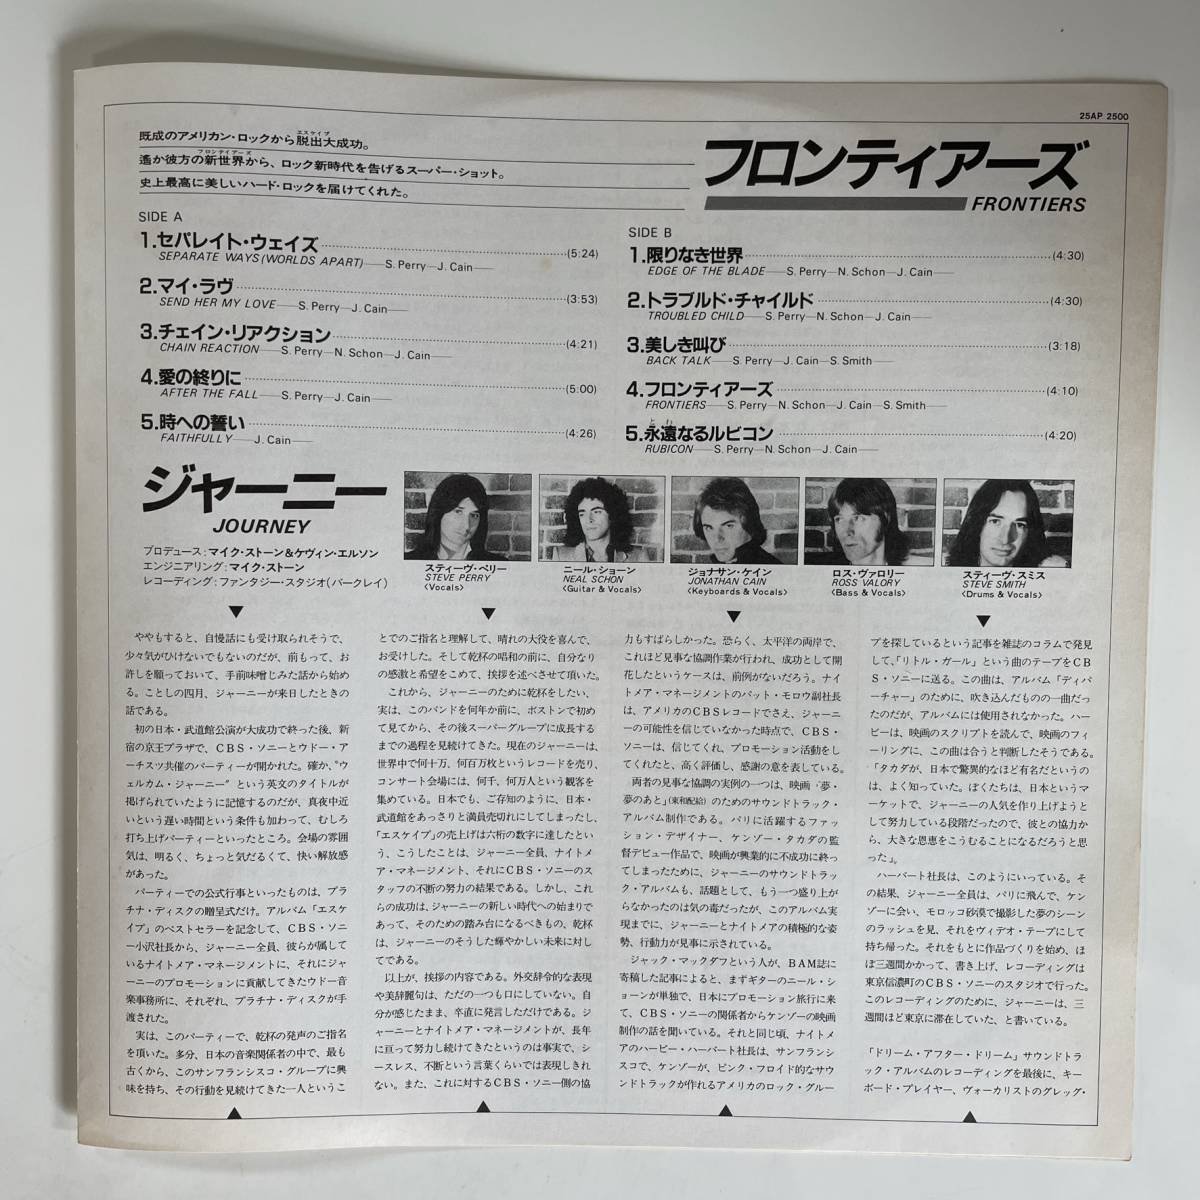 25AP 2500
既成のアメリカン・ロックから脱出大成功。
エスケイプ
遙か彼方の新世界から、ロック新時代を告げるスーパー・ショット。
フロンティアーズ
史上最高に美しいハード・ロックを届けてくれた。
フロンティアーズ
FRONTIERS
SIDE A
1.セパレイト・ウェイズ (5:24)
SEPARATE WAYS (WORLDS APART)—S. Perry—J. Cain—
2.マイ・ラヴ (3:53)
SEND HER MY LOVE—S. Perry—J. Cain—
3.チェイン・リアクション (4:21)
CHAIN REACTION—S. Perry—N. Schon—J. Cain—
4.愛の終りに (5:00)
AFTER THE FALL—S. Perry—J. Cain—
5.時への誓い (4:26)
FAITHFULLY—J. Cain—
SIDE B
1.限りなき世界 (4:30)
EDGE OF THE BLADE—S. Perry—N. Schon—J. Cain—
2.トラブルド・チャイルド (4:30)
TROUBLED CHILD—S. Perry—N. Schon—J. Cain—
3.美しき叫び (3:18)
BACK TALK—S. Perry—J. Cain—S. Smith—
4.フロンティアーズ (4:10)
FRONTIERS—S. Perry—N. Schon—J. Cain—S. Smith—
5.永遠なるルビコン (4:20)
とわ
RUBICON—S. Perry—N. Schon—J. Cain—
ジャーニー
JOURNEY
プロデュース:マイク・ストーン&ケヴィン・エルソン
エンジニアリング:マイク・ストーン
レコーディング:ファンタジー・スタジオ(バークレイ)
スティーヴ・ペリー
STEVE PERRY
〈Vocals〉
ニール・ショーン
NEAL SCHON
〈Guitar & Vocals〉
ジョナサン・ケイン
JONATHAN CAIN
〈Keyboards & Vocals〉
ロス・ヴァロリー
ROSS VALORY
〈Bass & Vocals〉
スティーヴ・スミス
STEVE SMITH
〈Drums & Vocals〉
ややもすると、自慢話にも受け取られそうで、
少々気がひけないでもないのだが、前もって、お
許しを願っておいて、手前味噌じみた話から始め
る。ことしの四月、ジャーニーが来日したときの
話である。
初の日本・武道館公演が大成功で終った後、新
宿の京王プラザで、CBS・ソニーとウドー・ア
ーチスツ共催のパーティーが開かれた。確か、“ウ
ェルカム・ジャーニー”という英文のタイトルが
掲げられていたように記憶するのだが、真夜中近
いという遅い時間という条件も加わって、むしろ
打ち上げパーティーといったところ。会場の雰囲
気は、明るく、ちょっと気だるくて、快い解放感
があった。
パーティーでの公式行事といったものは、プラ
チナ・ディスクの贈呈式だけ。アルバム「エスケ
イプ」のベストセラーを記念して、CBS・ソニ
ー小沢社長から、ジャーニー全員、彼らが属して
いるナイトメア・マネージメントに、それにジャ
ーニーのプロモーションに貢献してきたウドー音
楽事務所に、それぞれ、プラチナ・ディスクが手
渡された。
実は、このパーティーで、乾杯の発声のご指名
を頂いた。多分、日本の音楽関係者の中で、最も
古くから、このサンフランシスコ・グループに興
味を持ち、その行動を見続けてきた一人というこ
とでのご指名と理解して、晴れの大役を喜んで、
お受けした。そして乾杯の唱和の前に、自分なり
の感激と希望をこめて、挨拶を述べさせて頂いた。
これから、ジャーニーのために乾杯をしたい、
実は、このバンドを何年か前に、ボストンで初め
て見てから、その後スーパーグループに成長する
までの過程を見続けてきた。現在のジャーニーは、
世界中で何十万、何百万枚というレコードを売り、
コンサート会場には、何千、何万人という観客を
集めている。日本でも、ご存知のように、日本・
武道館をあっさりと満員売切れにしてしまったし、
「エスケイプ」の売上げは六桁の数字に達したとい
う、こうしたことは、ジャーニー全員、ナイトメ
ア・マネージメント、それにCBS・ソニーのス
タッフの不断の努力の結果である。しかし、これ
らの成功は、ジャーニーの新しい時代への始まりで
あって、そのための踏み台になるべきもの、乾杯
は、ジャーニーのそうした輝やかしい未来に対し
てである。
以上が、挨拶の内容である。外交辞令的な表現
や美辞麗句は、ただの一つも口にしていない。自
分が感じたまま、卒直に発言しただけである。ジ
ャーニーとナイトメア・マネージメントが、長年
に亘って努力し続けてきたというのは事実で、シ
ースレス、不断という言葉くらいでは表現しきれ
ない。また、これに対するCBS・ソニー側の協
力もすばらしかった。恐らく、太平洋の両岸で、
これほど見事な協調作業が行われ、成功として開
花したというケースは、前例がないだろう。ナイ
トメア・マネージメントのパット・モロウ副社長
は、アメリカのCBSレコードでさえ、ジャーニ
ーの可能性を信じていなかった時点で、CBS・
ソニーは、信じてくれ、プロモーション活動をし
てくれたと、高く評価し、感謝の意を表している。
両者の見事な協調の実例の一つは、映画「夢・
夢のあと」(東和配給)のためのサウンドトラック・
アルバム制作である。パリに活躍するファッ
ション・デザイナー、ケンゾー・タカダの監
督デビュー作品で、映画が興業的に不成功に終っ
てしまったために、ジャーニーのサウンドトラッ
ク・アルバムも、話題として、もう一つ盛り上が
らなかったのは気の毒だったが、このアルバム実
現までに、ジャーニーとナイトメアの積極的な姿
勢、行動力が見事に示されている。
ジャック・マックダフという人が、BAM誌に
寄稿した記事によると、まずギターのニール・シ
ョーンが単独で、日本にプロモーション旅行に来
て、CBS・ソニーの関係者からケンゾーの映画
制作の話を聞いている。それと同じ頃、ナイトメ
アのハービー・ハーバート社長は、サンフランシ
スコで、ケンゾーが、ピンク・フロイド的なサウ
ンドトラックが作れるアメリカのロック・グルー
プを探しているという記事を雑誌のコラムで発見
して、「リトル・ガール」という曲のテープをCB
S・ソニーに送る。この曲は、アルバム「ディパ
ーチャー」のために、吹き込んだものの一曲だっ
たのだが、アルバムには使用されなかった。ハー
ビーは、映画のスクリプトを読んで、映画のフィ
ーリングに、この曲は合うと判断したそうである。
「タカダが、日本で驚異的なほど有名だというの
は、よく知っていた。ぼくたちは、日本というマ
ーケットで、ジャーニーの人気を作り上げようと
して努力している段階だったので、彼との協力か
ら、大きな恩恵をこうむることになるだろうと思
った」。
ハーバート社長は、このようにいっている。そ
の結果、ジャーニー全員は、パリに飛んで、ケン
ゾーに会い、モロッコ砂漠で撮影した夢のシーン
のラッシュを見、それをヴィデオ・テープにして
持ち帰った。それをもとに作品づくりを始め、ほ
ぼ三週間かかって、書き上げ、レコーディングは
東京信濃町のCBS・ソニーのスタジオで行った。
このレコーディングのために、ジャーニーは、三
週間ほど東京に滞在していた、と書いている。
「ドリーム・アフター・ドリーム」サウンドトラ
ック・アルバムのレコーディングを最後に、キー
ボード・プレイヤー、ヴォーカリストのグレッグ・